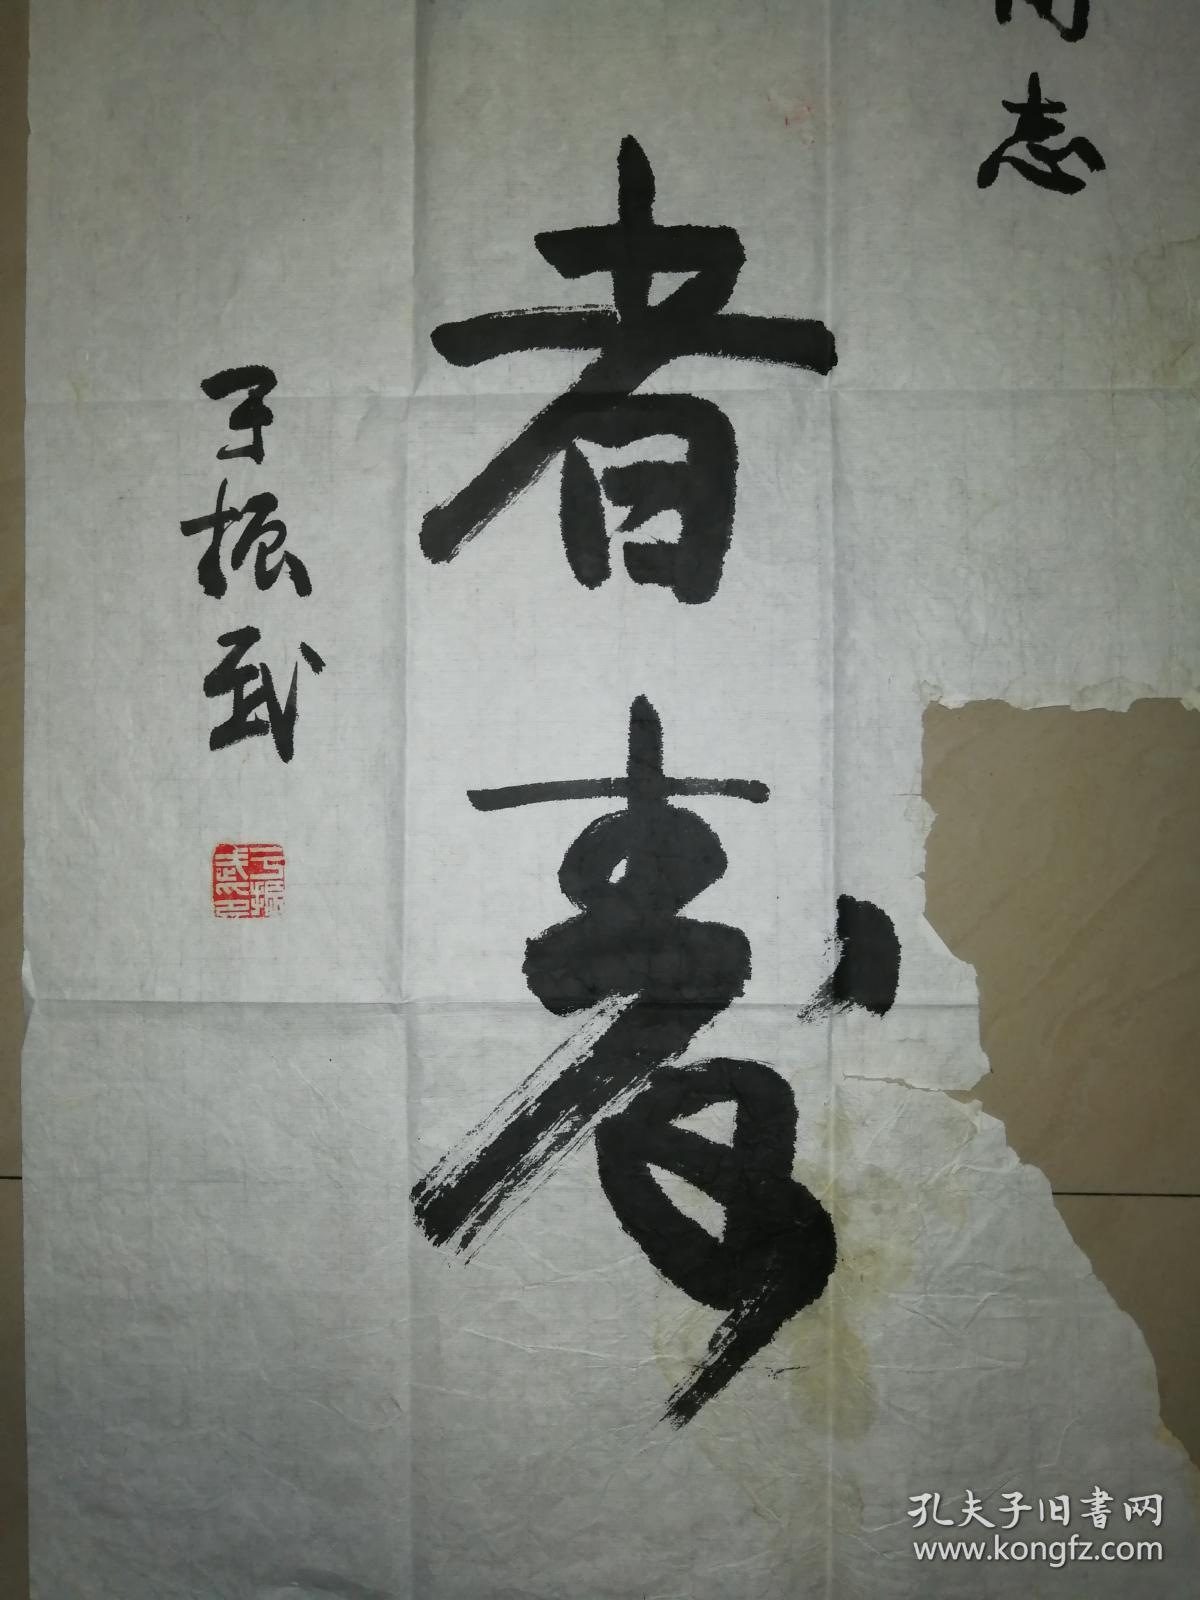 同志
者寿
于振武
于振武印
孔夫子旧书网
www.kongfz.com